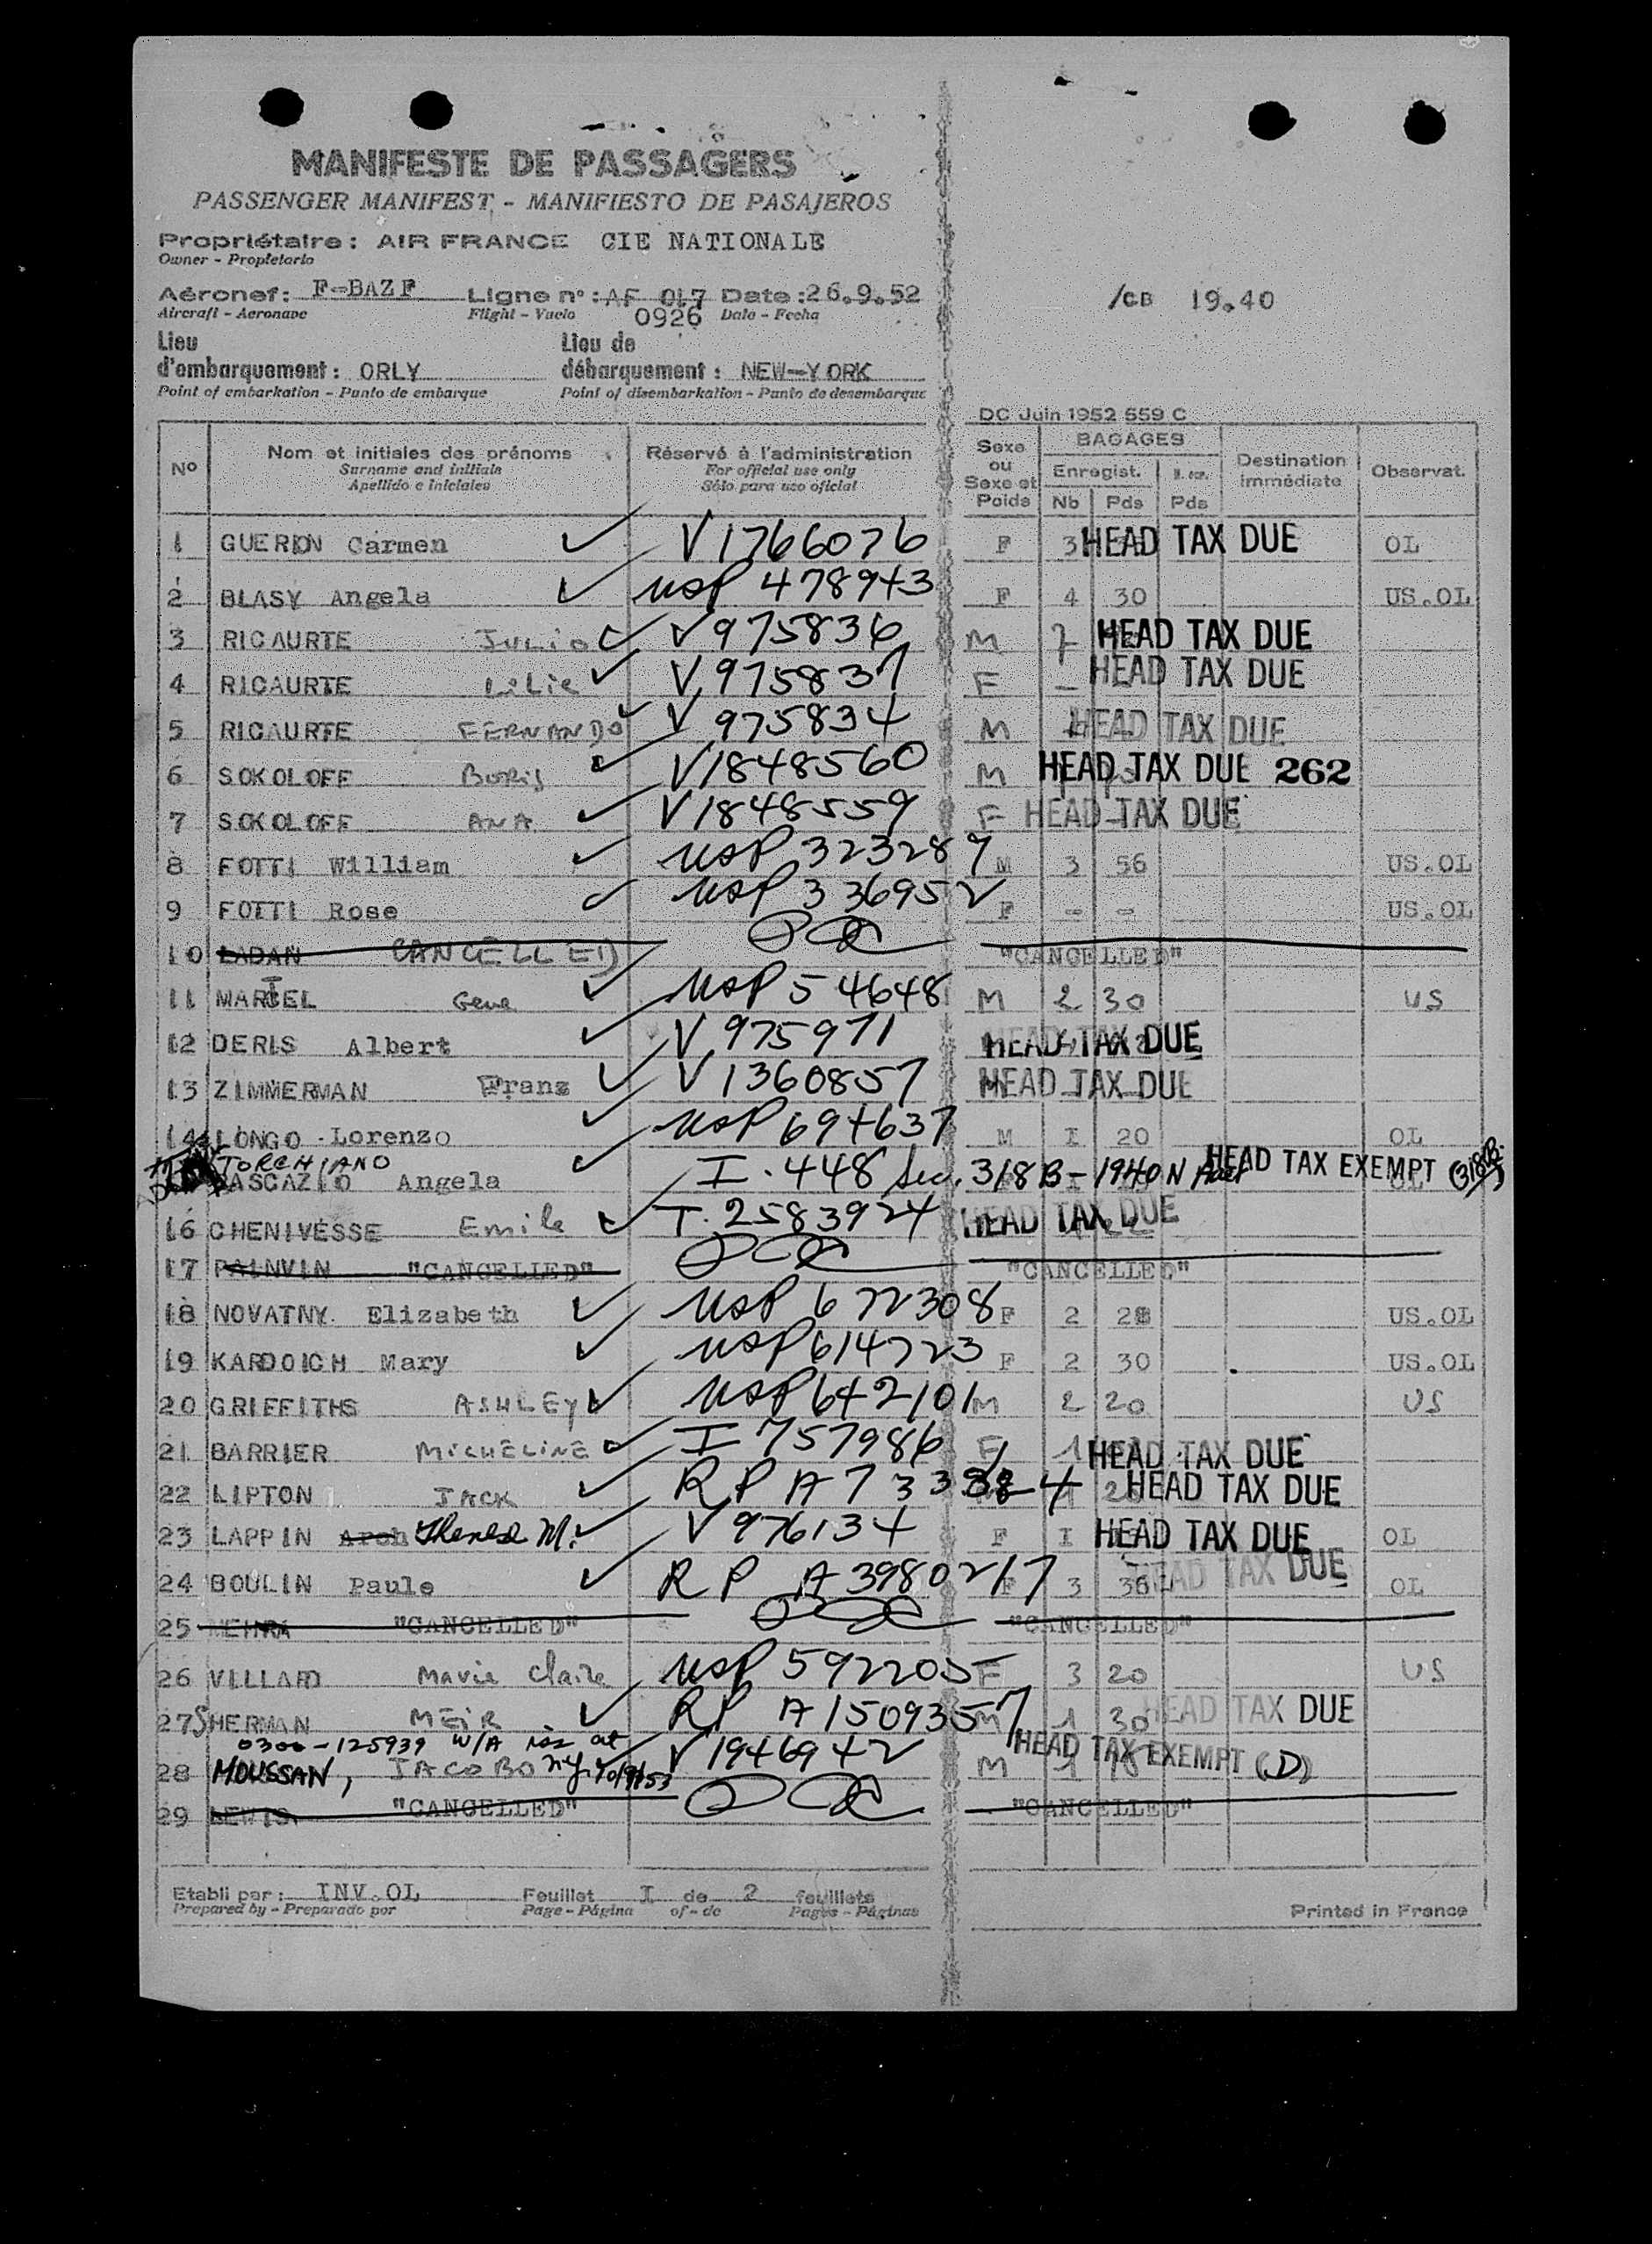 MANIFESTE DE PASSAGERS
PASSENGER MANIFEST - MANIFIESTO DE PASAJEROS
Propriétaire : AIR FRANCE CIE NATIONALE
Owner - Propietario
Aéronef : F-BAZF Ligne n° : AF 017 Date : 26.9.52
Aircraft - Aeronave Flight - Vuelo 0926 Date - Fecha
/CB 19.40
Lieu d'embarquement : ORLY Lieu de débarquement : NEW-YORK
Point of embarkation - Punto de embarque Point of disembarkation - Punto de desembarque
DC Juin 1952 559 C
N° Nom et initiales des prénoms Réservé à l'administration Sexe ou Sexe et Poids BAGAGES Enregist. Nb Pds Pds Destination immédiate Observat.
Surname and initials For official use only
Apellido e iniciales Sólo para uso oficial
1 GUERIN Carmen V1766076 F 3 HEAD TAX DUE OL
2 BLASY Angela USP 478943 F 4 30 US.OL
3 RICAURTE JULIO V975836 M 7 HEAD TAX DUE
4 RICAURTE LILIE V975837 F - HEAD TAX DUE
5 RICAURTE FERNANDO V 975834 M HEAD TAX DUE
6 SOKOLOFF Boris V1848560 M HEAD TAX DUE 262
7 SOKOLOFF ANA V1848559 F HEAD TAX DUE
8 FOTTI William USP 323289 M 3 56 US.OL
9 FOTTI Rose USP 336952 F - - US.OL
10 LADAN CANCELLED "CANCELLED"
11 MARTEL Gene USP 54648 M 2 30 US
12 DERIS Albert V 975971 HEAD TAX DUE
13 ZIMMERMAN Franz V1360857 HEAD TAX DUE
14 LONGO Lorenzo USP 694637 M I 20 OL
TORCHIANO
Angela I.448 Sec. 318B-1940 N HEAD TAX EXEMPT (318B) OL
16 CHENIVESSE Emile T.2583924 HEAD TAX DUE
17 PAINVIN "CANCELLED" "CANCELLED"
18 NOVATNY Elizabeth USP 672308 F 2 28 US.OL
19 KARDOICH Mary USP 614723 F 2 30 US.OL
20 GRIFFITHS ASHLEY USP 642101 M 2 20 US
21 BARRIER MICHELINE I 757986 F 1 HEAD TAX DUE
22 LIPTON JACK RP A7333 HEAD TAX DUE
23 LAPPIN Theresa M. V976134 F I HEAD TAX DUE OL
24 BOULIN Paule RP A3980217 F 3 36 HEAD TAX DUE OL
25 MEHRA "CANCELLED" "CANCELLED"
26 VILLARD Marie Claire USP 592205 F 3 20 US
27 SHERMAN MEIR RP A1509357 M 1 30 HEAD TAX DUE
0300-125939 W/A iss at
28 MOUSSAN, JACOBO ny V1946942 M 1 HEAD TAX EXEMPT (D)
29 LEWIS "CANCELLED" "CANCELLED"
Etabli par : INV.OL Feuillet I de 2 feuillets
Prepared by - Preparado por Page - Página of - de Pages - Páginas
Printed in France